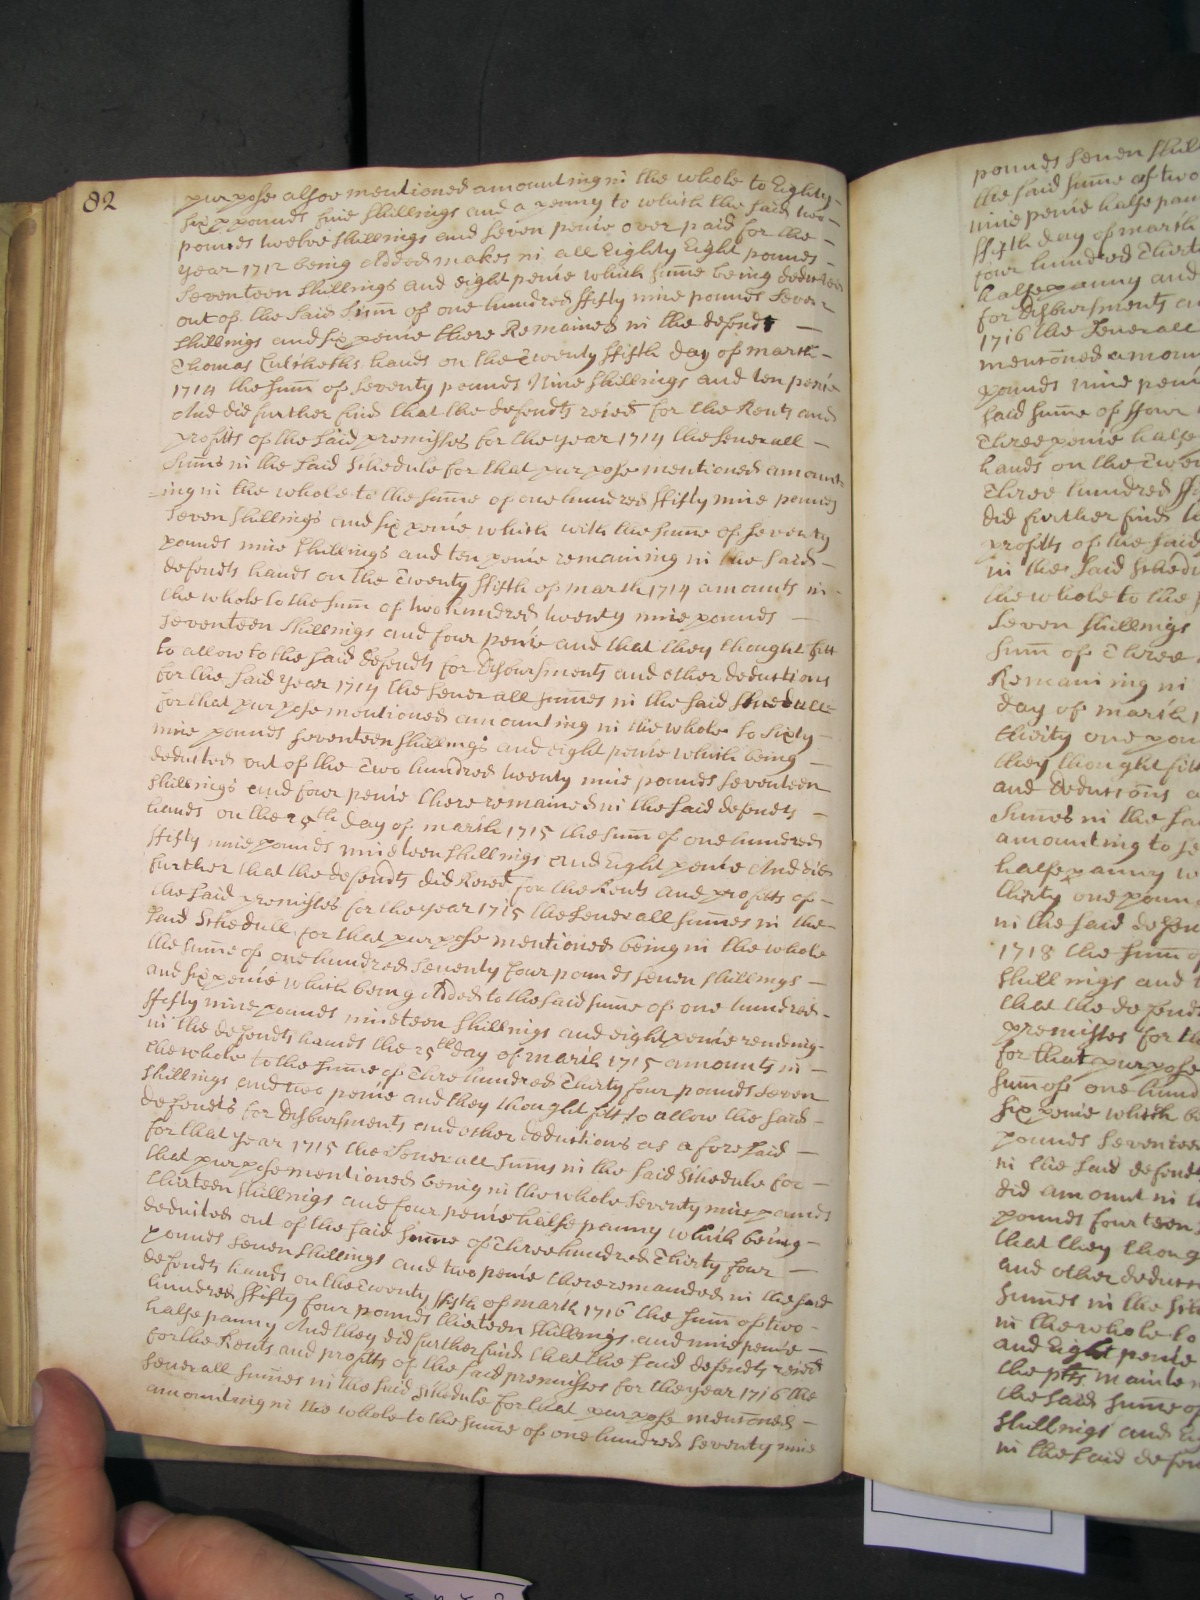 82
purpose alsoe mentioned amounting in the whole to Eighty
six pounds five shillings and a penny to which the said two
pounds twelve shillings and seven penie over paid for the
year 1712 being Added makes in all Eighty Eight pounds
seventeen shillings and eight penie which sume being deducted
out of the said Sum of one hundred ffifty nine pounds seven
shillings and six penie there Remained in the defendt
Thomas hands on the Twenty ffifth day of march
1714 the sum of seventy pounds Nine shillings and ten penie
And did further find that the defendts reied for the Rents and
profitts of the said premisses for the year 1714 the severall
sums in the said Schedule for that purpose mentioned amount
ing in the whole to the sume of one hundred ffifty nine pounds
seven shillings and six penie which with the sume of seventy
pounds nine shillings and ten penie remaining in the said
defendts hands on the Twenty ffifth of march 1714 amounts in
the whole to the sum of two hundred twenty nine pounds
seventeen shillings and four penie and that they thought fitt
to allow to the said defendts for Disbursments and other deductions
for the said year 1714 the severall sumes in the said Schedule
for that purpose mentioned amounting in the whole to sixty
nine pounds seventeen shillings and eight penie which being
deducted out of the Two hundred twenty nine pounds seventeen
shillings and four penie there remained in the said defendts
hands on the 25th day of march 1715 the sum of one hundred
ffifty nine pounds nineteen shillings and Eight penie And did
further that the defendts did Reied for the Rents and profitts of
the said premisses for the year 1715 the severall sumes in the
said Schedull for that purpose mentioned being in the whole
the sume of one hundred seventy four pounds seven shillings
and six penie which being Added to the said sume of one hundred
ffifty nine pounds nineteen shillings and eight penie remaing
in the defendts hands the 25th day of march 1715 amounts in
the whole to the sume of Three hundred Thirty four pounds seven
shillings and two penie and they thought fitt to allow the said
defendts for Disbursments and other deductions as aforesaid
for that year 1715 the Severall sums in the said Schedule for
that purpose mentioned being in the whole seventy nine pounds
thirteen shillings and four penie halfe panny which being
deducted out of the said sume of Three hundred Thirty four
pounds seven shillings and two penie there remainded in the said
defendts hands on the Twenty ffifth of march 1716 the sum of two
hundred ffifty four pounds thirteen shillings and nine penie
halfe panny And they did further find that the said defendts reied
for the Rents and profitts of the said premisses for the year 1716 the
severall sumes in the said Schedule for that purpose mencioned
amounting in the whole to the sume of one hundred seventy nine
pounds seven
the said sume of two
nine penie halfe pan
ffifth day of march
four hundred Thirt
halfe panny and
for Disbursments a
1716 the severall
mencioned amoun
pounds nine peni
said sume of ffour
Three penie halfe
hands on the Twen
Three hundred ff
did further find th
profitts of the said
in the said Schedu
the whole to the
seven shillings
sum of Three
Remaining in
day of march
thirty one poun
they thought fitt
and Deductions a
sumes in the sa
amounting to se
halfe panny w
thirty one poun
in the said defen
1718 the sum of
shillings and
that the defend
premisses for th
for that purpose
sum of one hund
six penie which b
pounds seventee
in the said defendt
did amount in th
pounds fourteen
that they thoug
and other deduct
sumes in the sch
in the whole to
and Eight penie
the
the said sume of
shillings and
in the said defen